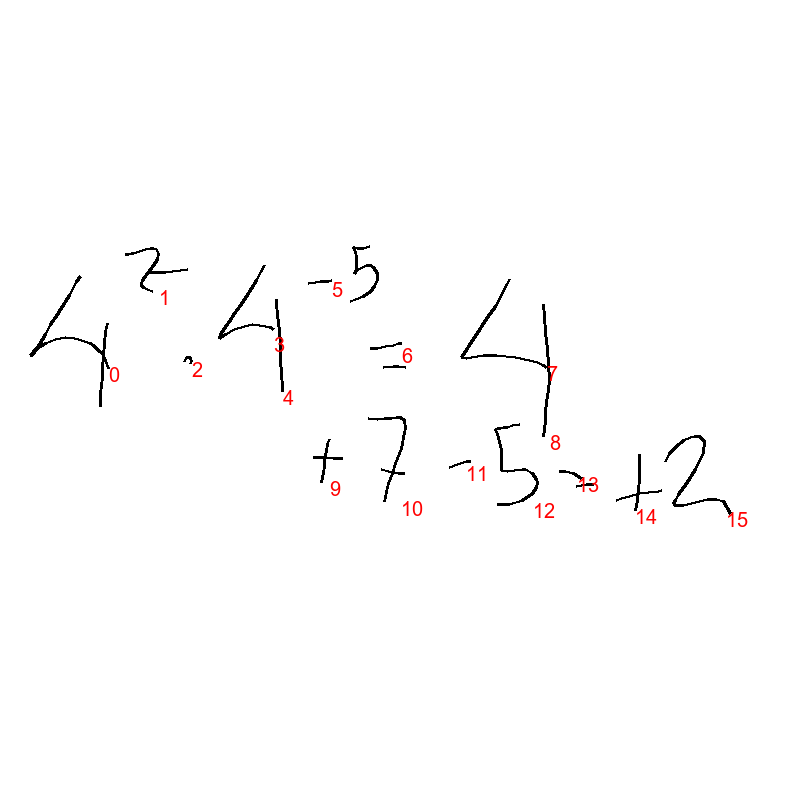 4² · 4⁻⁵ = 4
+7 -5 = +2
0 1 2 3 4 5 6 7 8 9 10 11 12 13 14 15